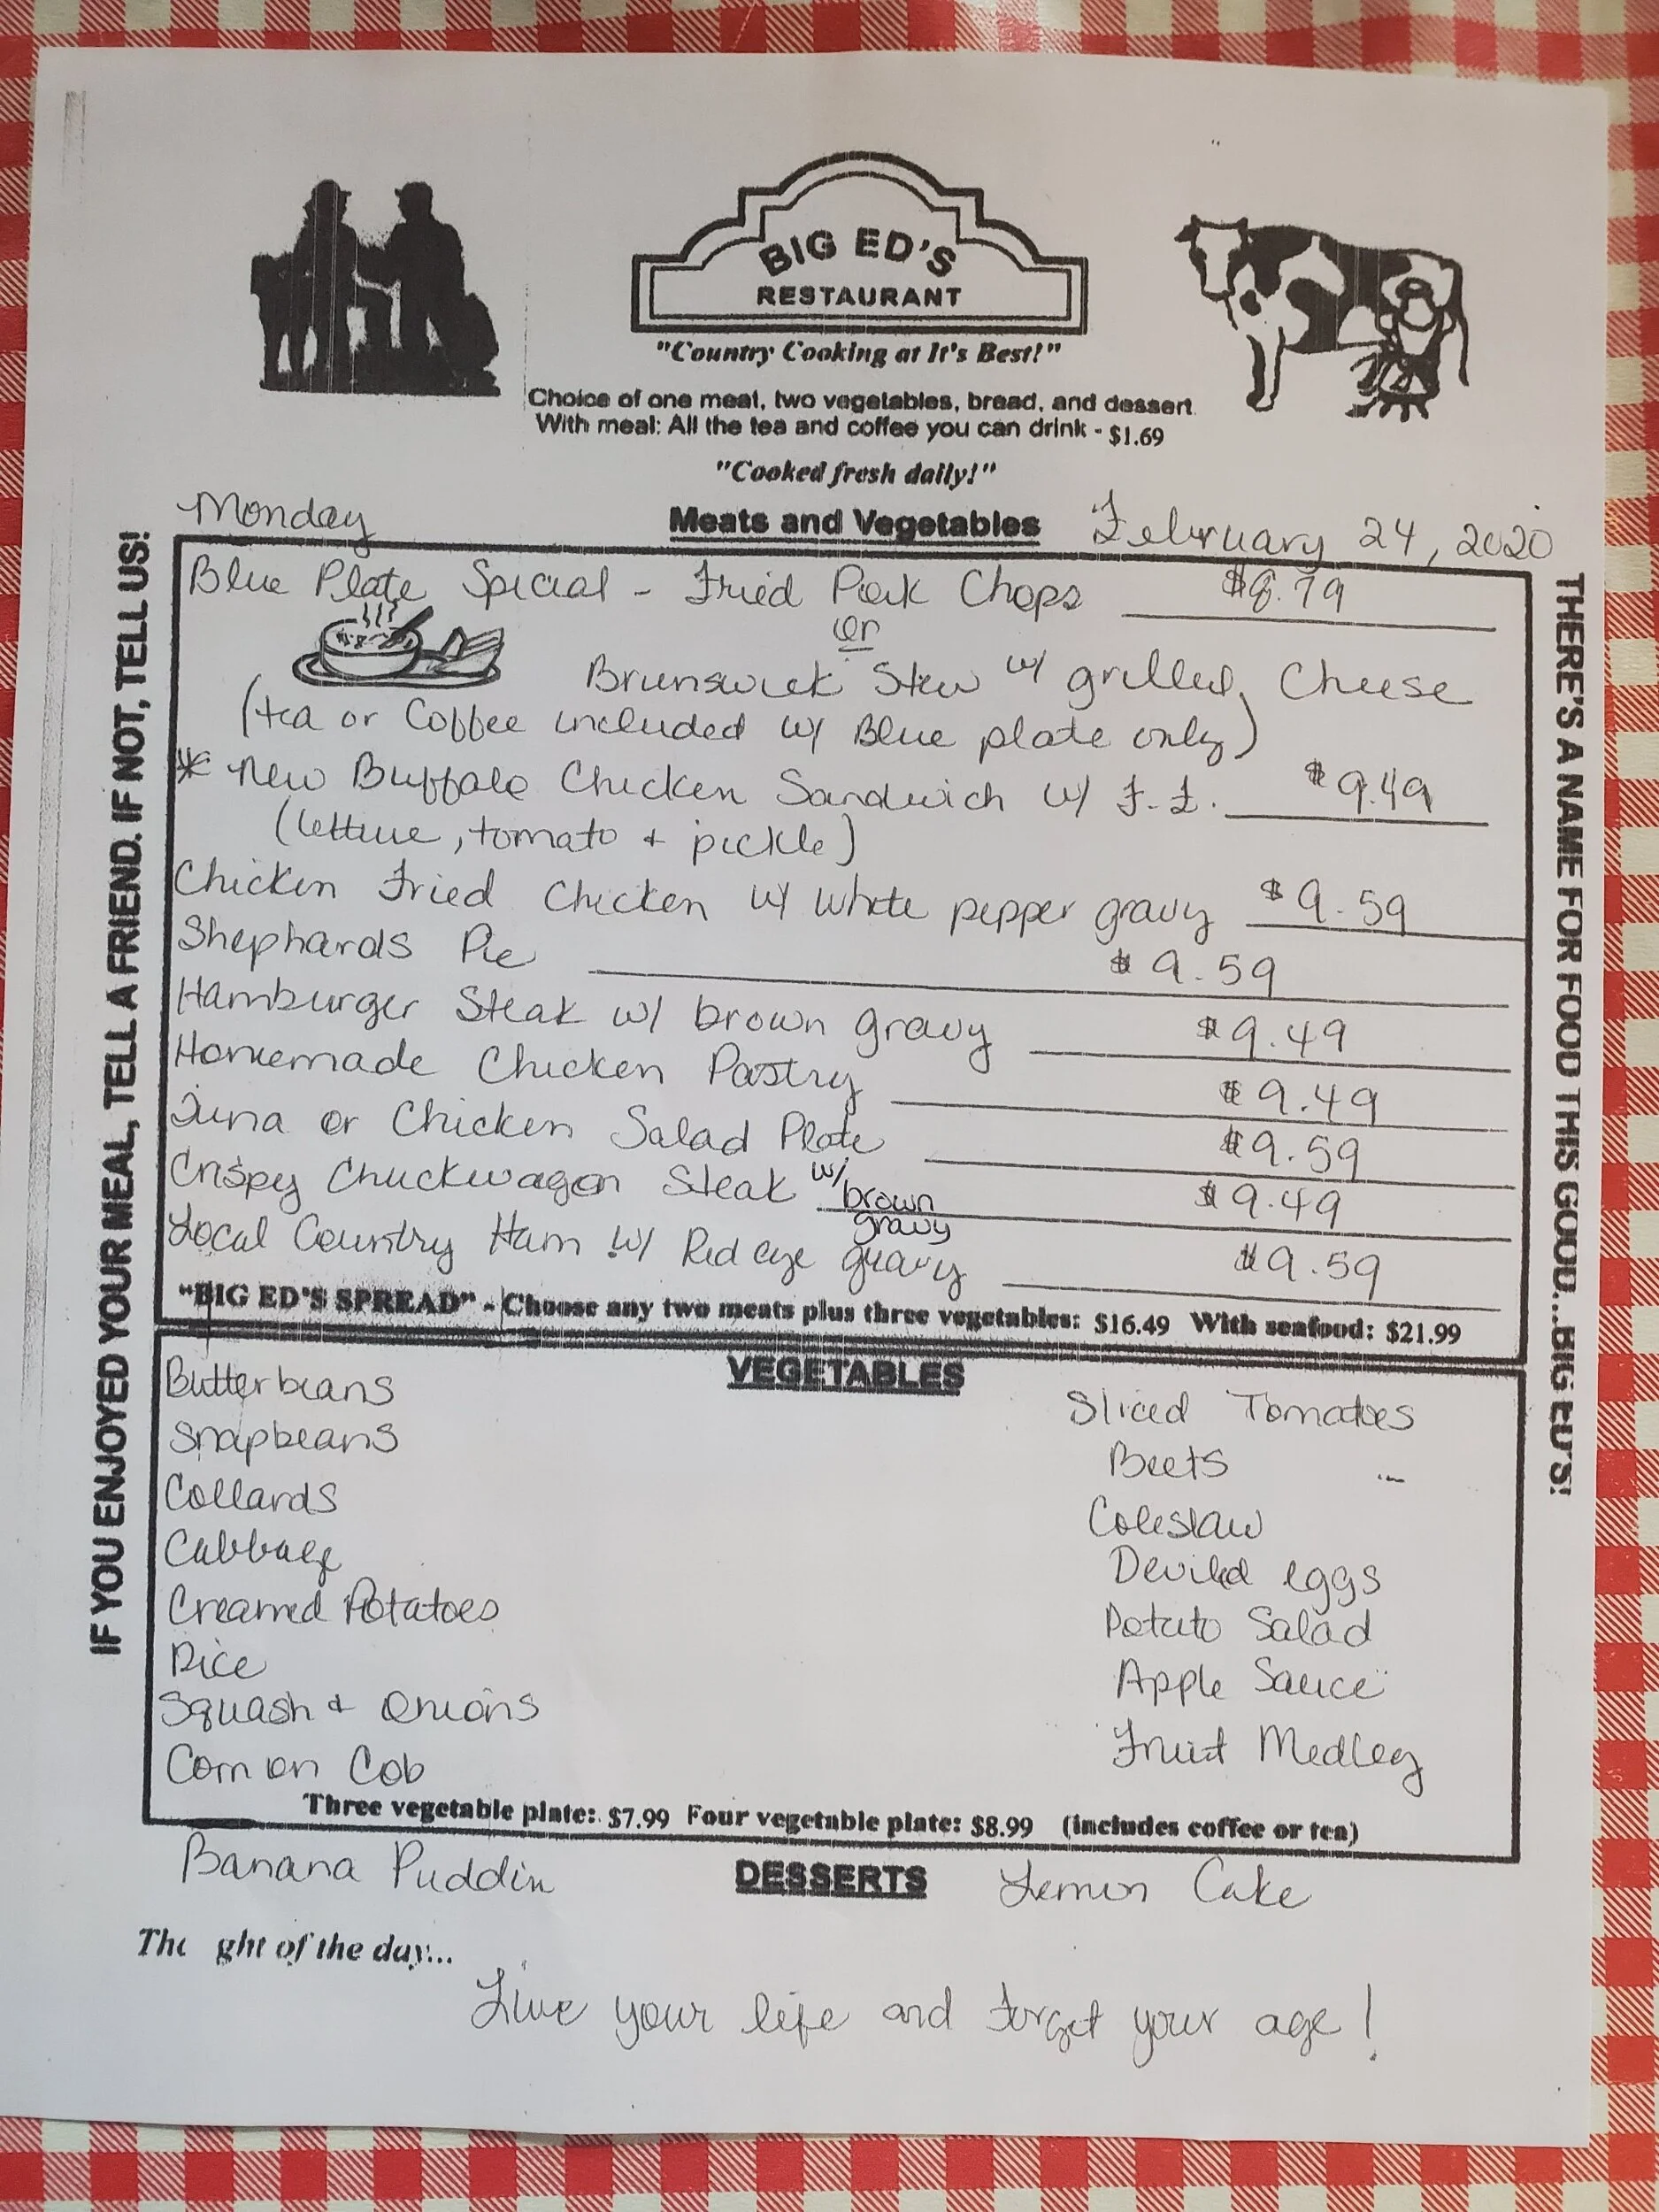 BIG ED'S
RESTAURANT
"Country Cooking at It's Best!"
Choice of one meat, two vegetables, bread, and dessert
With meal: All the tea and coffee you can drink - $1.69
"Cooked fresh daily!"
Monday
Meats and Vegetables
February 24, 2020
IF YOU ENJOYED YOUR MEAL, TELL A FRIEND. IF NOT, TELL US!
THERE'S A NAME FOR FOOD THIS GOOD...BIG ED'S!
Blue Plate Special - Fried Pork Chops $8.79
or
Brunswick Stew w/ grilled Cheese
(tea or Coffee included w/ Blue plate only)
* New Buffalo Chicken Sandwich w/ F.F. $9.49
(lettuce, tomato + pickle)
Chicken Fried Chicken w/ white pepper gravy $9.59
Shephards Pie $9.59
Hamburger Steak w/ brown gravy $9.49
Homemade Chicken Pastry $9.49
Tuna or Chicken Salad Plate $9.59
Crispy Chuckwagon Steak w/ brown gravy $9.49
Local Country Ham w/ Red eye gravy $9.59
"BIG ED'S SPREAD" - Choose any two meats plus three vegetables: $16.49 With seafood: $21.99
VEGETABLES
Butterbeans
Snapbeans
Collards
Cabbage
Creamed Potatoes
Rice
Squash + Onions
Corn on Cob
Sliced Tomatoes
Beets
Coleslaw
Deviled eggs
Potato Salad
Apple Sauce
Fruit Medley
Three vegetable plate: $7.99 Four vegetable plate: $8.99 (includes coffee or tea)
DESSERTS
Banana Puddin
Lemon Cake
The ght of the day...
Live your life and forget your age!